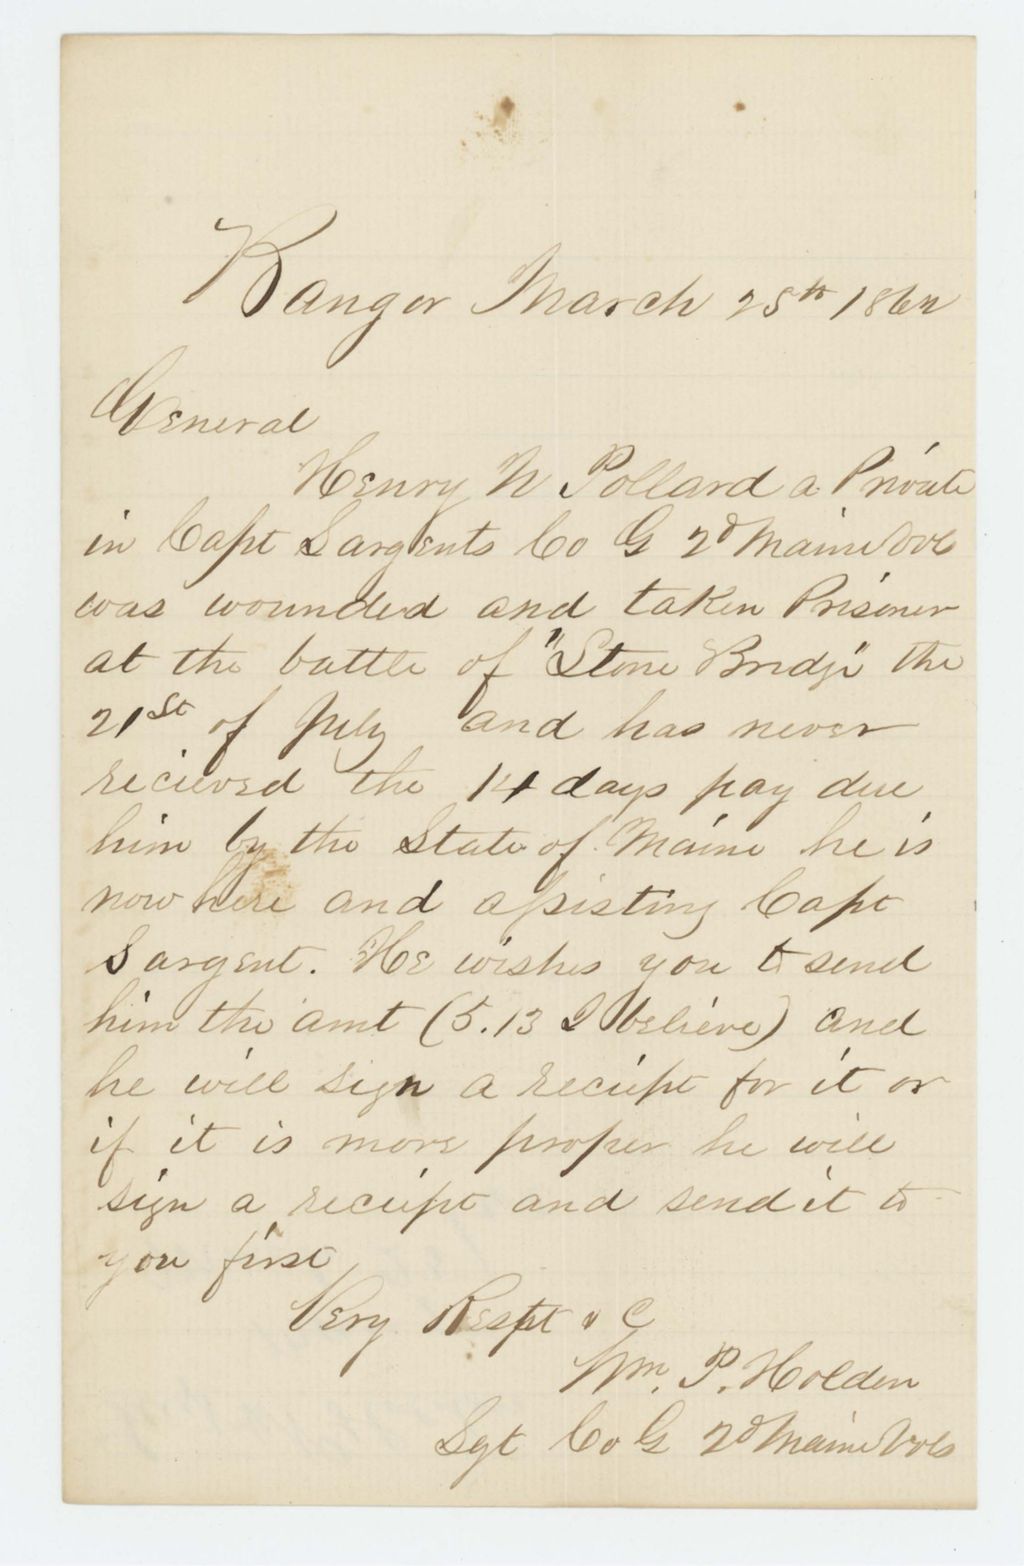 Bangor March 25th 1862
General
Henry W Pollard a Private
in Capt Sargents Co G 2d Maine Vols
was wounded and taken Prisoner
at the battle of "Stone Bridge" the
21st of July and has never
recieved the 14 days pay due
him by the State of Maine he is
now here and assisting Capt
Sargent. He wishes you to send
him the amt (5.13 I believe) and
he will sign a reciept for it or
if it is more proper he will
sign a reciept and send it to
you first
Very Respt &C
Wm. P. Holden
Sgt Co G 2d Maine Vols